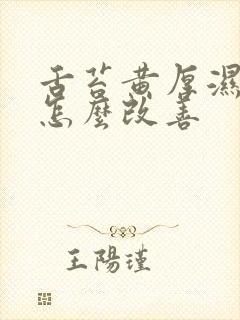 舌苔黄厚濕
怎麼改善
王陽瑾